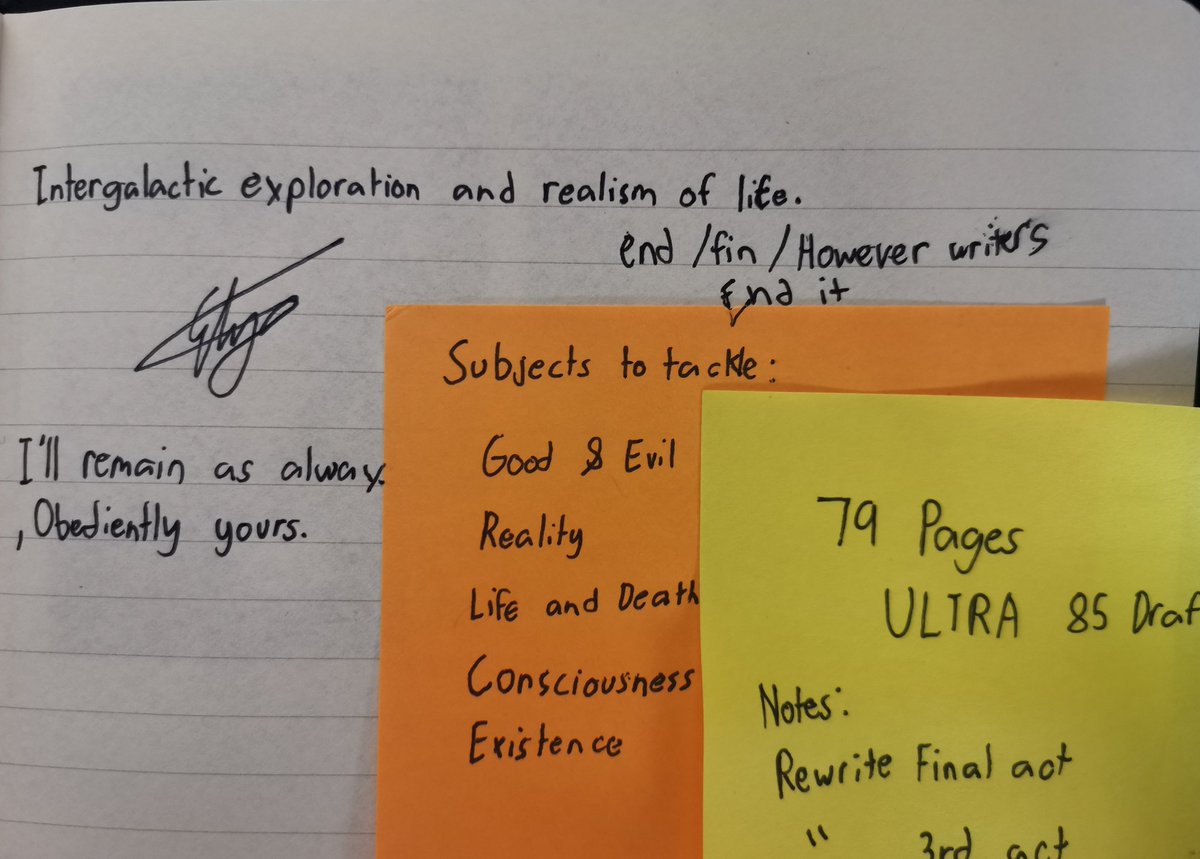 Intergalactic exploration and realism of life.
end /fin / However writers
End it
I'll remain as always
, Obediently yours.
Subjects to tackle:
Good & Evil
Reality
Life and Death
Consciousness
Existence
79 Pages
ULTRA 85 Draf
Notes:
Rewrite Final act
" 3rd act